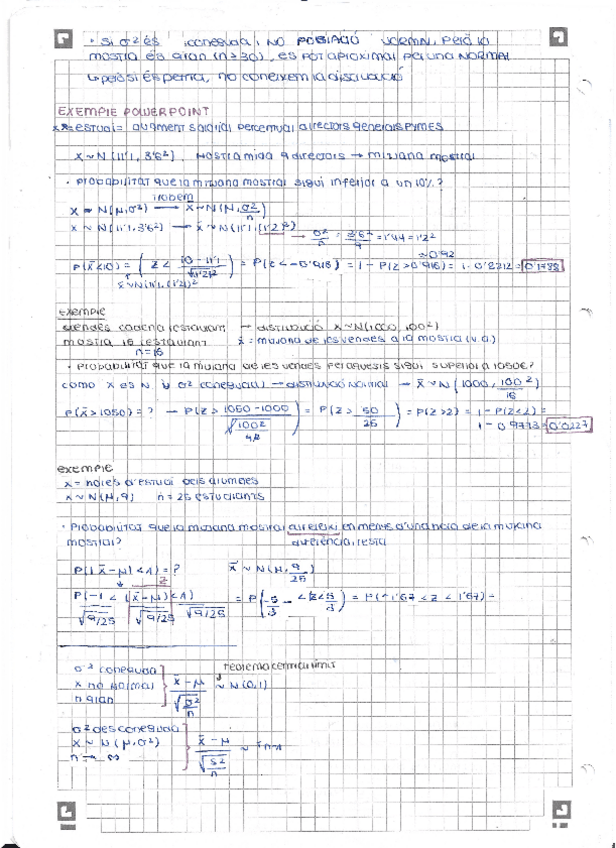 · Si σ² és coneguda, NO POBLACIÓ NORMAL, però la
mostra és gran (n≥30), es pot aproximar per una NORMAL
↳ però si és petita, no coneixem la distribució
EXEMPLE POWERPOINT
x = estudi = augment salarial percentual directors generals PYMES
X ~ N(11'1, 3'6²). Mostra mida 9 directors → mitjana mostral
· Probabilitat que la mitjana mostral sigui inferior a un 10%?
X ~ N(μ, σ²) → x̄ ~ N(μ, σ²/n)
X ~ N(11'1, 3'6²) → x̄ ~ N(11'1, (1'2)²) → σ²/n = 3'6²/9 = 1'44 = 1'2²
≈0'92
P(x̄<10) = (Z < 10 - 11'1/√1'2²) = P(Z < -0'916) = 1 - P(Z > 0'916) = 1 - 0'8212 = 0'1788
x̄ ~ N(11'1, (1'2)²
exemple
vendes cadena restaurant → distribució X ~ N(1000, 100²)
mostra 16 restaurant x̄ = mitjana de les vendes a la mostra (v.a.)
n=16
· Probabilitat que la mitjana de les vendes per aquests sigui superior a 1050€?
com X és N i σ² coneguda → distribució normal → x̄ ~ N(1000, 100²/16)
P(x̄ > 1050) = ? → P(Z > 1050 - 1000/√100²/16) = P(Z > 50/25) = P(Z>2) = 1 - P(Z<2) =
1 - 0'9773 = 0'0227
exemple
x = hores d'estudi dels alumnes
X ~ N(μ, 9) n = 25 estudiants
· Probabilitat que la mitjana mostral difereixi en menys d'una hora de la mitjana
mostral? diferència, resta
P(|x̄-μ| < 1) = ? x̄ ~ N(μ, 9/25)
P(-1/√9/25 < (x̄-μ)/√9/25 < 1/√9/25) = P(-5/3 < Z < 5/3) = P(-1'67 < Z < 1'67) =
teorema central límit
σ² coneguda
x no normal x̄ - μ/√σ²/n ~ N(0,1)
n gran
σ² desconeguda
X ~ N(μ, σ²) x̄ - μ/√s²/n ~ tn-1
n → ∞